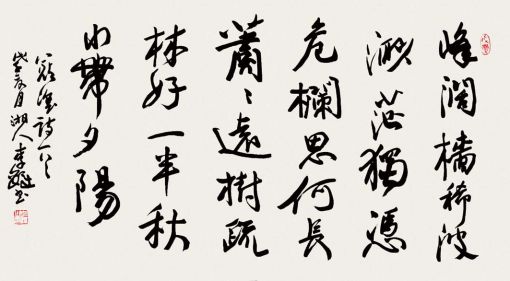 峰闊檣稀波
渺茫獨憑
危欄思何長
蕭〻遠樹疏
林好一半秋
山帶夕陽
寇準詩一首
月湖人李書